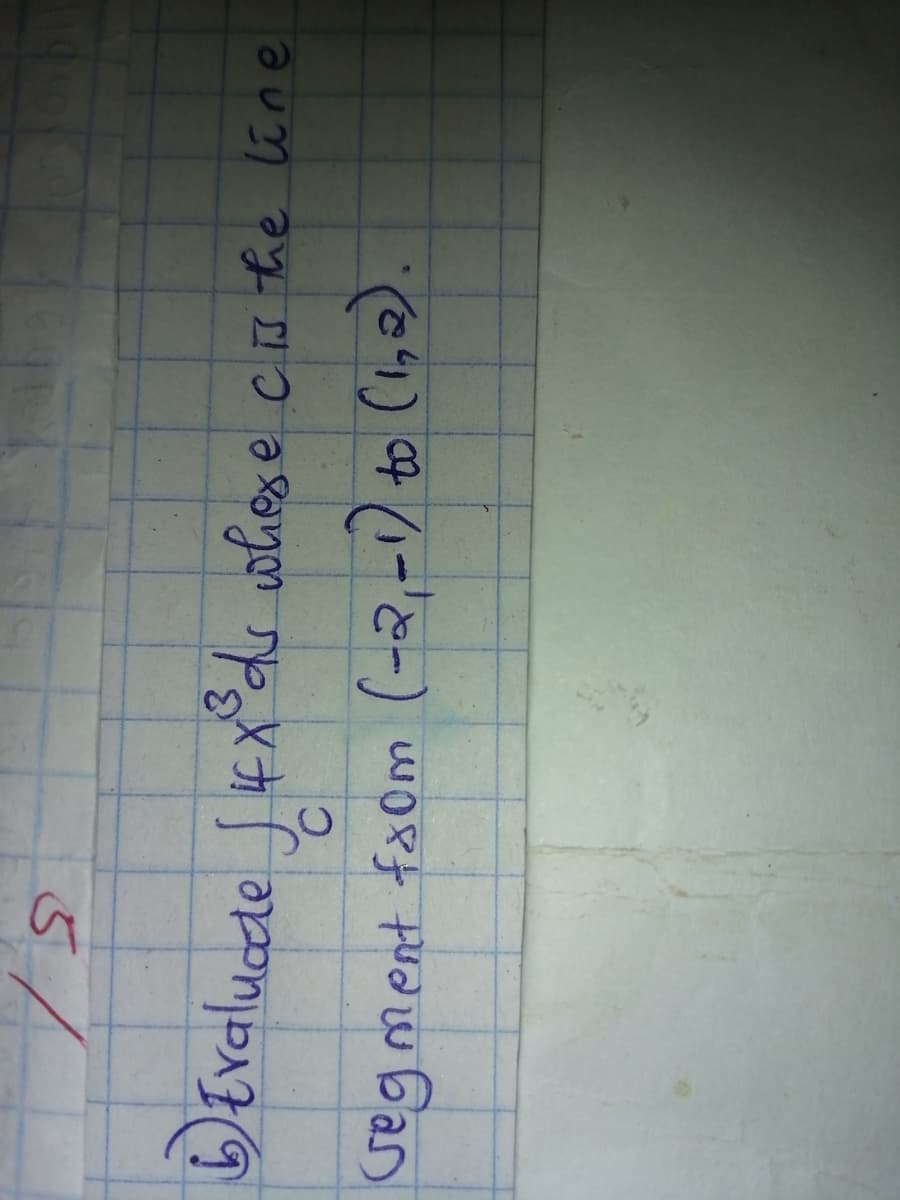 /5
b) Evaluate ∫ 4x³ds whose C is the line
C
segment from (-2,-1) to (1,2).